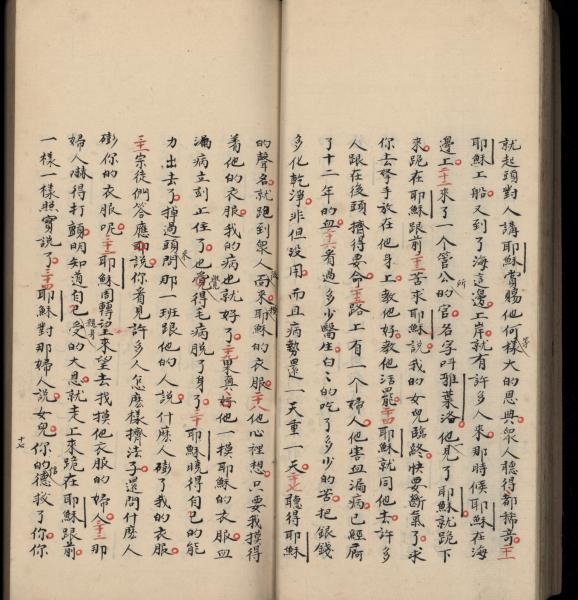 就起頭對人講耶穌賞賜他何等樣大的恩典衆人聽得都稀奇二十一
耶穌上船又到了海這邊上岸就有許多人來那時候耶穌在海
邊上二十二來了一個管公所的官名字呌雅葉洛他見了耶穌就跪下
來跪在耶穌跟前二十三苦求耶穌說我的女兒臨終快要斷氣了求
你去拏手放在他身上教他好教他活罷二十四耶穌就同他去許多
人跟在後頭擠得要命二十五路上有一個婦人他害血漏病已經屙
了十二年的血二十六看過多少醫生白白的吃了多少的苦把銀錢
多化乾淨非但没用而且病勢還一天重一天二十七聽得耶穌
的聲名就跑到衆人後面來摸耶穌的衣服二十八他心裡想只要我摸得
着他的衣服我的病也就好了二十九果真好他一摸耶穌的衣服血
漏病立刻止住了也覺得毛病脫了身了三十耶穌曉得自己的能
力出去了掉過頭來問那一班跟他的人說什麽人碰了我的衣服
三十一宗徒們答應耶說你看見許多人怎麽樣擠法子還問什麽人
碰你的衣服呢三十二耶穌周轉望來望去找摸他衣服的婦人三十三那
婦人嚇得打顫明知道自己親身受的大恩就走上來跪在耶穌跟前
一樣一樣照實說了三十四耶穌對那婦人說女兒你的信德救了你你
十七